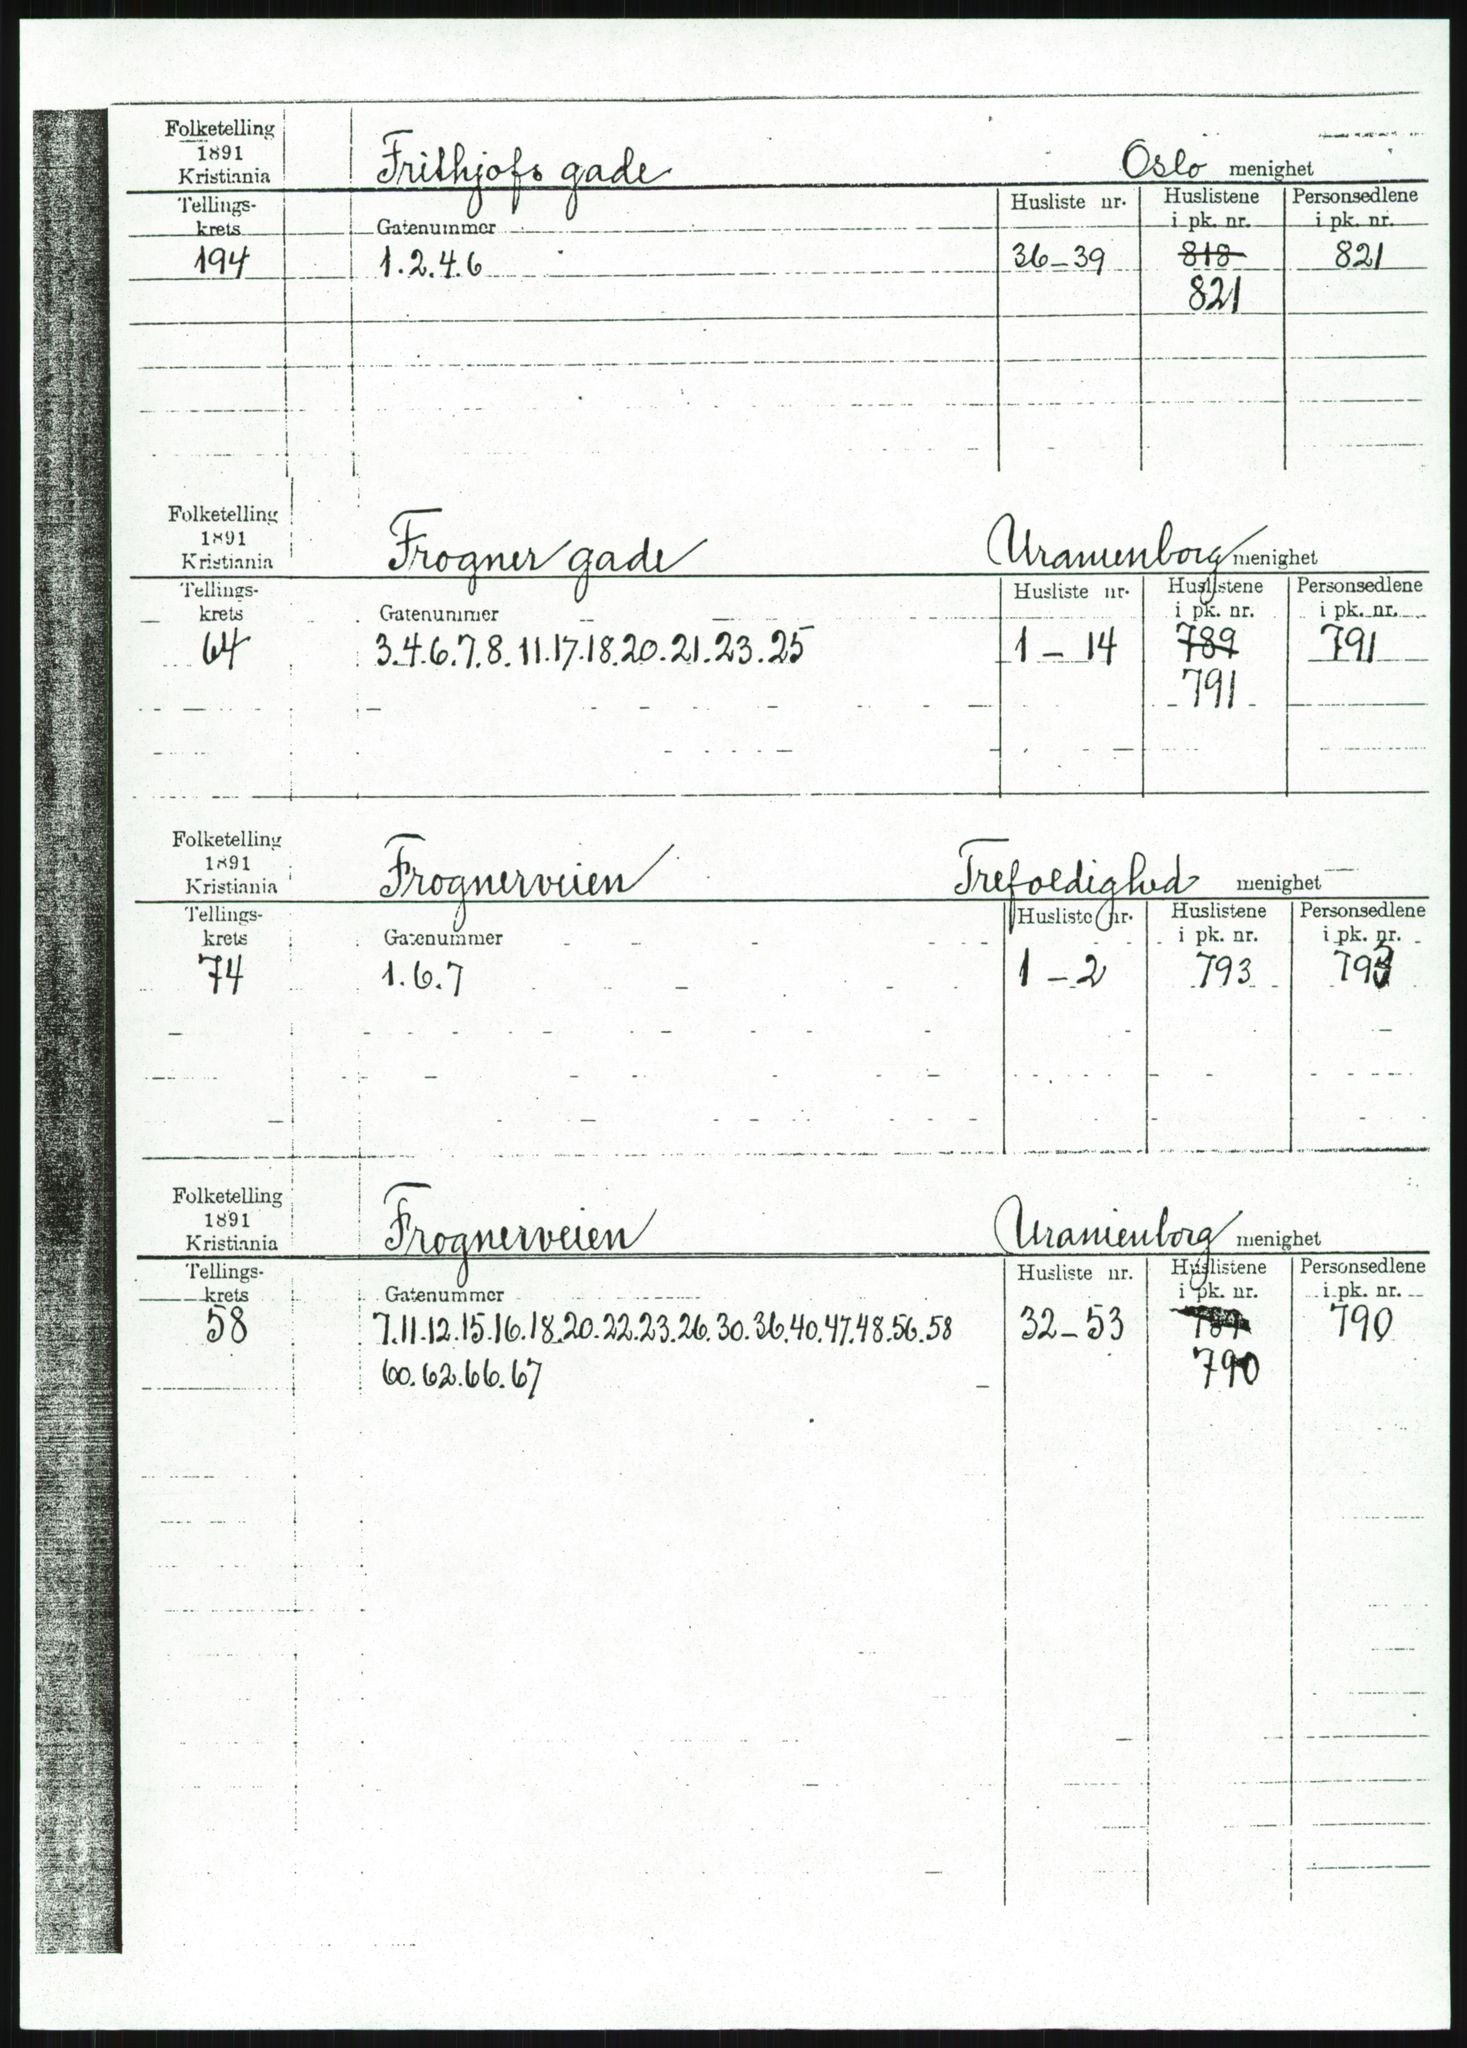 Folketelling
1891
Kristiania
Frithjofs gade
Oslo menighet
Tellings-
krets
Gatenummer
Husliste nr.
Huslistene
i pk. nr.
Personsedlene
i pk. nr.
194
1.2.4.6
36-39
818
821
821
Folketelling
1891
Kristiania
Frogner gade
Uranienborg menighet
Tellings-
krets
Gatenummer
Husliste nr.
Huslistene
i pk. nr.
Personsedlene
i pk. nr.
64
3.4.6.7.8.11.17.18.20.21.23.25
1 - 14
789
791
791
Folketelling
1891
Kristiania
Frognerveien
Trefoldighed menighet
Tellings-
krets
Gatenummer
Husliste nr.
Huslistene
i pk. nr.
Personsedlene
i pk. nr.
74
1.6.7
1 - 2
793
793
Folketelling
1891
Kristiania
Frognerveien
Uranienborg menighet
Tellings-
krets
Gatenummer
Husliste nr.
Huslistene
i pk. nr.
Personsedlene
i pk. nr.
58
7.11.12.15.16.18.20.22.23.26.30.36.40.47.48.56.58
32-53
790
60.62.66.67
790